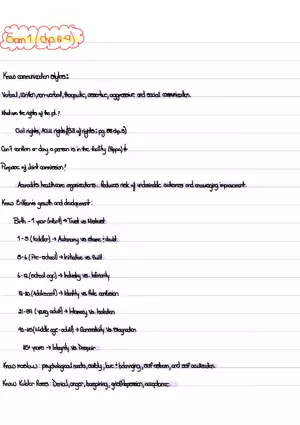 Exam 1 (chp. 8-9)
Know communication styles:
Verbal, Written, non-verbal, therapeutic, assertive, aggressive and social communication.
What are the rights of the pt.?
Civil rights, ACLU rights, (Bill of rights; pg
Can't confirm or deny a person is in the facility (Hippa)
Purpose of Joint commission?
Accredits healthcare organizations. Reduces risk of undesirable outcomes and encouraging improvement.
Know Erikson's growth and development:
Birth - 1 year (infant) → Trust vs Mistrust
1-3 (toddler) → Autonomy vs shame + doubt
3-6 (Pre-school) → Initiative vs Guilt
6-12 (school age) → Industry vs. Inferiority
12-20 (Adolescent) → Identity vs Role confusion
(young adult) → Intimacy vs. Isolation
(Middle age-adult) → Generativity vs Stagnation
years → Integrity vs Despair
Know maslow: psychological needs, safety, love + belonging, self esteem, and self actualization.
Know Kubler Ross: Denial, anger, bargaining, grief/depression, acceptance.